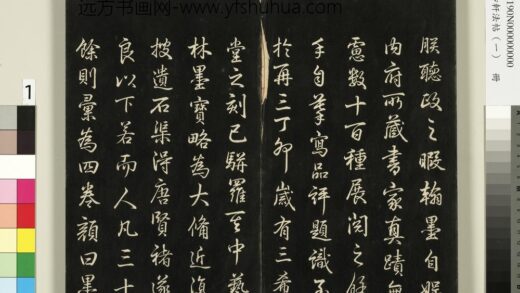 远方书画网-www.yfshuhua.com
朕聽政之暇翰墨自娛
内府所藏書家真蹟無
慮數十百種展閱之餘
手自摹寫品評題識
於再三丁卯歲有三希
堂之刻已駢羅中藝
林墨寶略為大備近復
搜遺石渠得唐賢褚遂
良以下若而人凡三十
餘則彙為四卷額曰墨
190N000000000
軒法帖（一） 冊
1